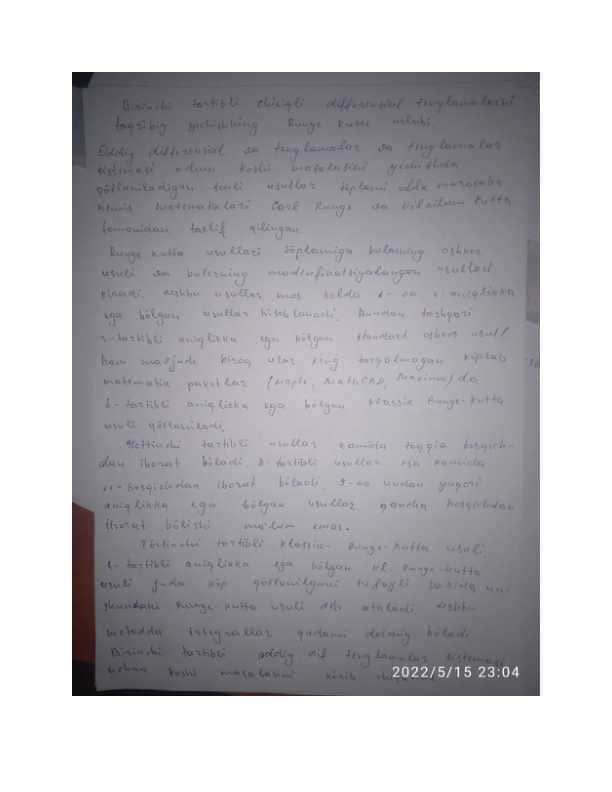 Birinchi tartibli chiziqli differensial tenglamalarni
taqribiy yechishning Runge Kutta uslubi
Oddiy differensial va tenglamalar va tenglamalar
sistemasi uchun Koshi masalasini yechishda
qo'llaniladigan usullar to'plami
nemis matematiklari Carl Runge va Vilhelm Kutta
tomonidan taklif qilingan
Runge Kutta usullari to'plamiga bularning oshkor
usuli va bularning modifikatsiyalangan usullari
kiradi. ushbu usullar mos holda 1- va 2 aniqlikka
ega bo'lgan usullar hisoblanadi. Bundan tashqari
3-tartibli aniqlikka ega bo'lgan standard oshkor usul
ham mavjud biroq ular keng tarqalmagan ko'plab
matematik paketlar (maple, MathCAD, Maxima) da
4-tartibli aniqlikka ega bo'lgan klassik Runge-kutta
usuli qo'llaniladi.
Yettinchi tartibli usullar kamida to'qqiz bosqich-
dan iborat bo'ladi. 8-tartibli usullar esa kamida
11-bosqichdan iborat bo'ladi. 9-va undan yuqori
aniqlikka ega bo'lgan usullar qancha bosqichdan
iborat bo'lishi ma'lum emas.
To'rtinchi tartibli klassik Runge-kutta usuli.
4-tartibli aniqlikka ega bo'lgan Runge-kutta
usuli juda ko'p qo'llanilgani tufayli
shundaki Runge-kutta usuli deb ataladi. ushbu
metodda integrallar qadami doimiy bo'ladi
Birinchi tartibli oddiy dif tenglamalar sistemasi
uchun Koshi masalasini
2022/5/15 23:04